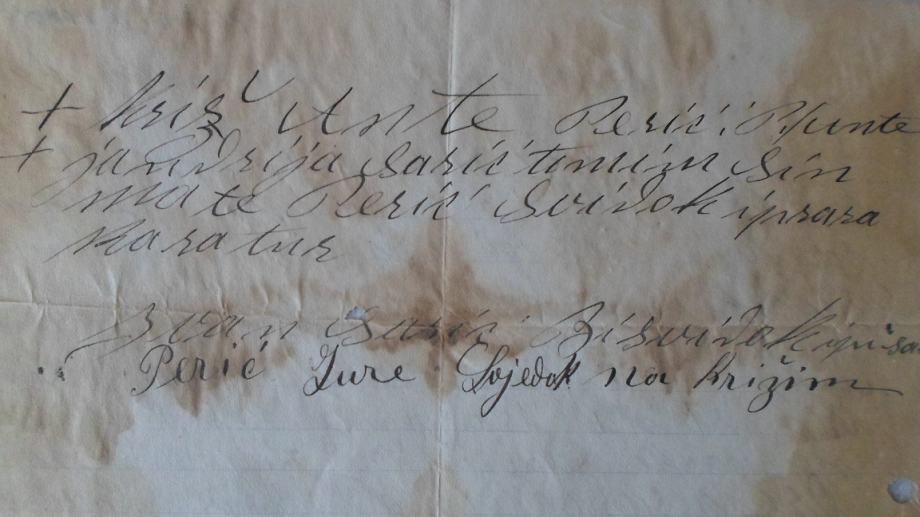 + Križ Ante Perić i Munte
+ jandrija Sarić tomin Sin
mate Perić Svidok i prara
Karatur
Ivan Sarić Bi svidok i pisa
Perić Jure Svjedok na križim